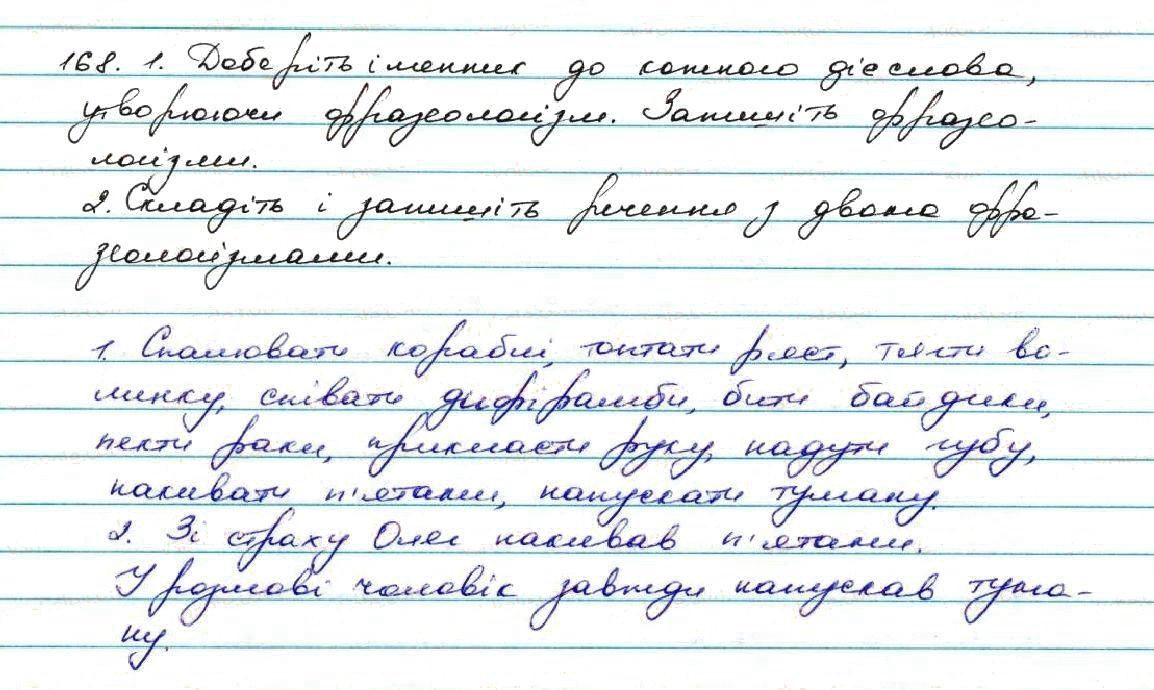 168. 1. Доберіть іменник до кожного дієслова,
утворюючи фразеологізм. Запишіть фразео-
логізми.
2. Складіть і запишіть речення з двома фра-
зеологізмами.
1. Спалювати кораблі, топтати ряст, тягти во-
линку, співати дифірамби, бити байдики,
пекти раки, прикласти руку, надути губу,
накивати п'ятами, напускати туману.
2. Зі страху Олег накивав п'ятами.
У розмові чоловік завжди напускав тума-
ну.